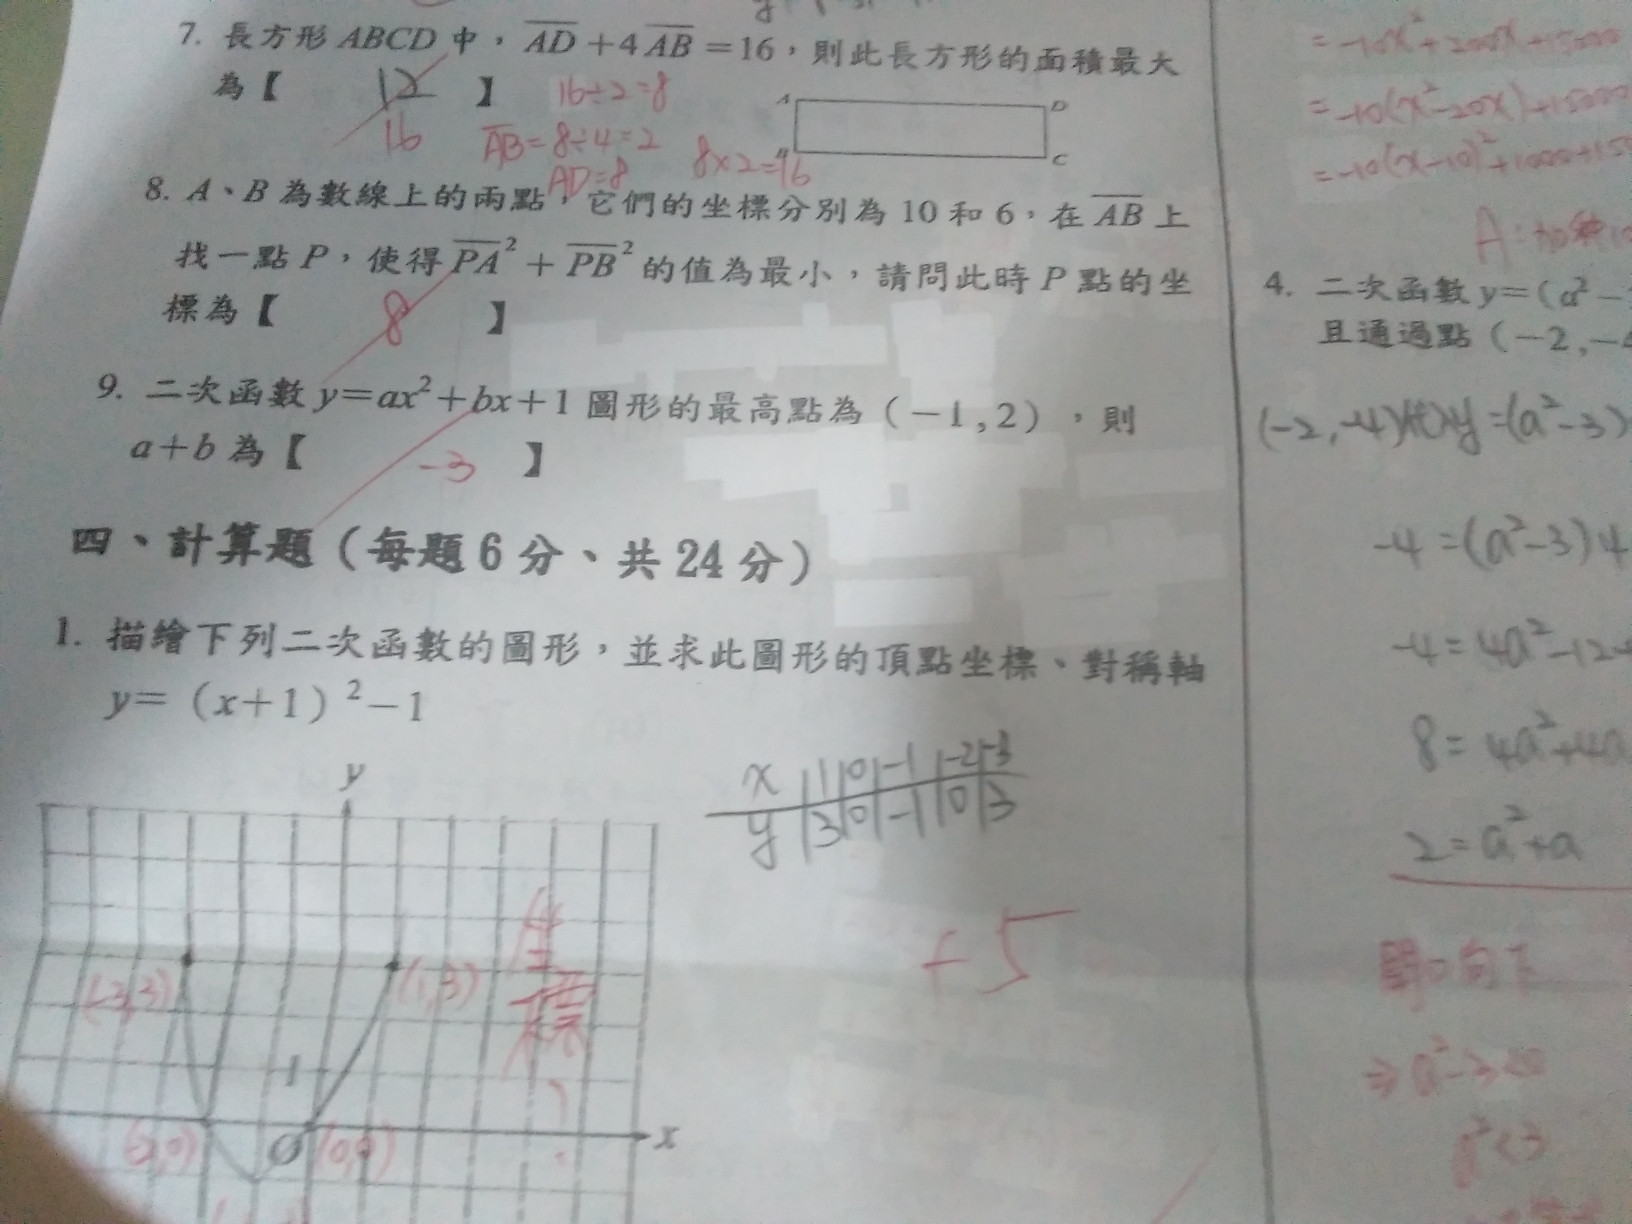 7. 長方形 ABCD 中，AD+4AB=16，則此長方形的面積最大
為【 12 】 16÷2=8
16 AB=8÷4=2 8×2=16
AD=8
A D
B C
8. A、B 為數線上的兩點，它們的坐標分別為 10 和 6，在 AB 上
找一點 P，使得 PA²+PB² 的值為最小，請問此時 P 點的坐
標為【 8 】
9. 二次函數 y=ax²+bx+1 圖形的最高點為（－1,2），則
a+b 為【 -3 】
四、計算題（每題 6 分、共 24 分）
1. 描繪下列二次函數的圖形，並求此圖形的頂點坐標、對稱軸
y=（x+1）²－1
x 1 0 -1 -2 -3
y 3 0 -1 0 3
y
(-3,3) (1,3)
+5
1
O x
=-10(x-10)²+1000+15
4. 二次函數 y=(a²－
且通過點（－2,－4
(-2,-4)代入y=(a²-3)
-4=(a²-3)4
-4=4a²-12+
8=4a²+4a
2=a²+a
開口向下